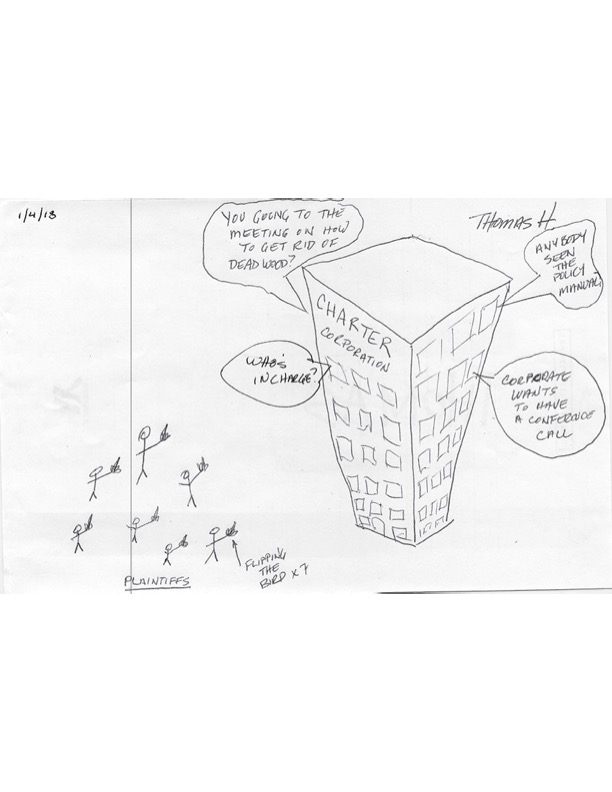 1/4/18
THOMAS H.
YOU GOING TO THE
MEETING ON HOW
TO GET RID OF
DEADWOOD?
ANYBODY
SEEN
THE
POLICY
MANUAL?
CHARTER
CORPORATION
WHO'S
IN CHARGE?
CORPORATE
WANTS
TO HAVE
A CONFERENCE
CALL
FLIPPING
THE
BIRD x 7
PLAINTIFFS